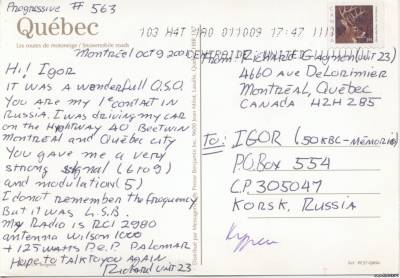 Progressive # 563
Québec
Les routes de motoneige / Snowmobile roads
103 H4T 1A0 011009 17:47
Montréal oct 9 2001
Hi! Igor
It was a wonderfull Q.S.O.
You are my 1e contact in
Russia. I was driving my car
on the Highway 40 Beetwin
Montréal and Québec city
You gave me a very
strong signal (6 to 9)
and modulation (5)
I do not remember the frequency
But it was L.S.B.
My Radio is RCI 2980
antenna Wilson 1000
+ 125 watts P.e.P Palomar
Hope to talk to you again
Richard unit 23
From: Richard Gagnon (unit 23)
4660 ave DeLorimier
Montréal, Québec
Canada H2H 2B5
To: IGOR (50KBC-Mémorie)
P.O.Box 554
C.P. 305047
Korsk, Russia
Курск